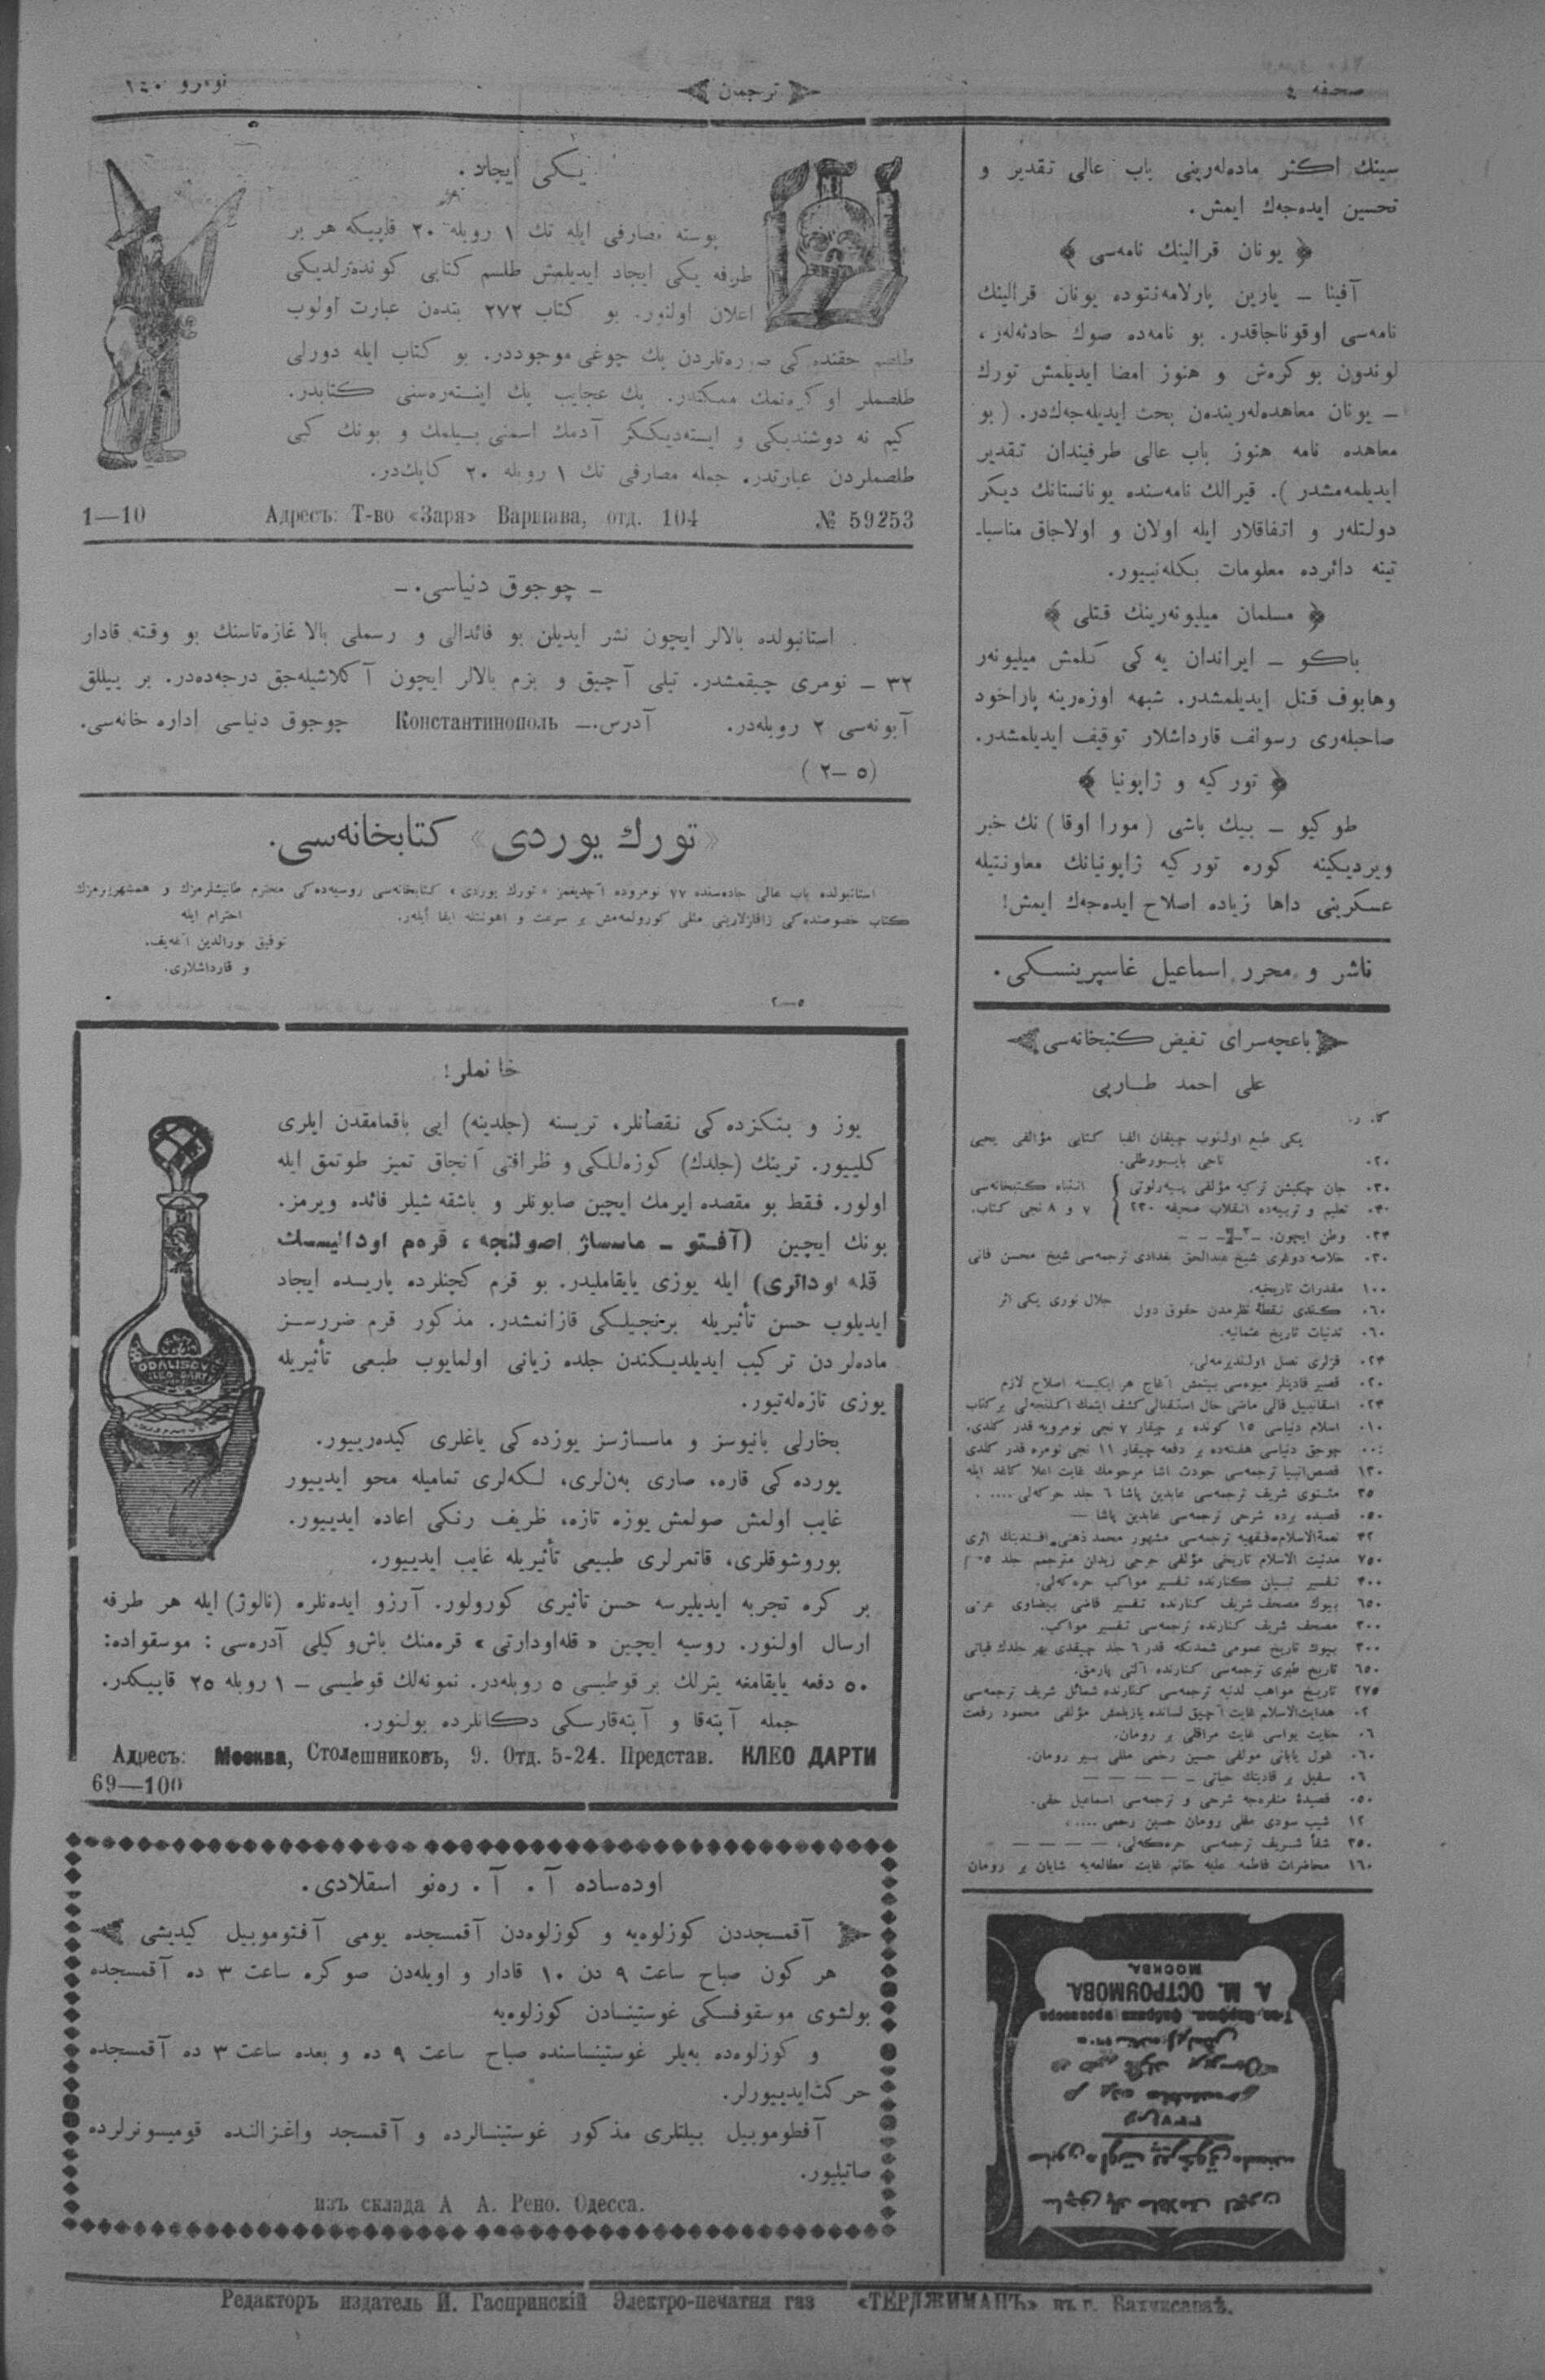 صحفه ٤
ترجمان
نومرو ١٤٠
سينك اكثر ماده‌لەرينى باب عالى تقدير و
تحسين ايده‌جەك ايمش.
﴿ يونان قرالينك نامه‌سى ﴾
آفينا ــ يارين پارلامه‌نتوده يونان قرالينك
نامه‌سى اوقوناجاقدر. بو نامه‌ده صوك حادثه‌لەر،
لوندون بوكره‌ش و هنوز امضا ايديلمش تورك
ــ يونان معاهده‌لەريندەن بحث ايديله‌جەكدر. (بو
معاهده نامه هنوز باب عالى طرفيندان تقدير
ايديلمەمشدر). قيرالك نامه‌سنده يونانستانك ديكر
دولتلەر و اتفاقلار ايله اولان و اولاجاق مناسبا-
تينه دائرده معلومات بكلەنييور.
﴿ مسلمان ميليونەرينك قتلى ﴾
باكو ــ ايراندان يه كى كلمش ميليونەر
وهابوف قتل ايديلمشدر. شبهه اوزەرينه پاراخود
صاحبلەرى رسولف قارداشلار توقيف ايديلمشدر.
﴿ توركيه و ژاپونيا ﴾
طوكيو ــ بيك باشى (مورا اوقا) نك خبر
ويرديكينه كوره توركيه ژاپونيانك معاونتيله
عسكرينى داها زياده اصلاح ايده‌جەك ايمش!
ناشر و محرر اسماعيل غاسپرينسكى.
باغچه‌سراى تفيض كتبخانه‌سى
على احمد طارپى
كا. ر.
يكى طبع اولنوب چيقان الفبا كتابى مؤلفى يحيى
ناجى بايبورطلى. ٠٢٠
٠٣٠ جان چكيشن تركيه مؤلفى پيەرلوتى } انتباه كتبخانه‌سى
٠٣٠ تعليم و تربيه‌ده انقلاب صحيفه ٢٣٠ } ٧ و ٨ نجى كتاب.
٠٢٣ وطن ايچون.
٠٣٠ خلاصه دوغرى شيخ عبدالحق بغدادى ترجمه‌سى شيخ محسن فانى
١٠٠ مقدرات تاريخيه.
٠٦٠ كندى نقطهٔ نظرمدن حقوق دول جلال نورى يكى اثر
٠٦٠ تدنيات تاريخ عثمانيه.
٠٢٣ قزلرى نصل اولنديرمەلى.
٠٢٠ قصير قادينلر ميوه‌سى بيتمش آغاج هر ايكيسنه اصلاح لازم
٠١٠ اسلام دنياسى ١٥ كونده بر چيقار ٧ نجى نومرويه قدر كلدى.
چوجق دنياسى هفته‌ده بر دفعه چيقار ١١ نجى نومره قدر كلدى
٣٥٠ مثنوى شريف ترجمه‌سى عابدين پاشا ٦ جلد حركه‌لى ....
٠٥٠ قصيده برده شرحى ترجمه‌سى عابدين پاشا —
٧٥٠ مدنيت الاسلام تاريخى مؤلفى جرجى زيدان مترجم جلد ٥
٤٠٠ تفسير تبيان كنارنده تفسير مواكب حره‌كەلى.
٦٥٠ بيوك مصحف شريف كنارنده تفسير قاضى بيضاوى عربى
٣٠٠ مصحف شريف كنارنده ترجمه‌سى تفسير مواكب.
٦٥٠ تاريخ طبرى ترجمه‌سى كنارنده آلتى پارمق.
٢٧٥ تاريخ مواهب لدنيه ترجمه‌سى كنارنده شمائل شريف ترجمه‌سى
هدايت‌الاسلام غايت آچيق لسانده يازيلمش مؤلفى محمود رفعت
٠٦ جنايت يواسى غايت مراقلى بر رومان.
٠٦٠ غول يابانى مؤلفى حسين رحمى مللى بير رومان.
٠٦ سفيل بر قادينك حياتى
٠٥٠ قصيدهٔ منفرجه شرحى و ترجمه‌سى اسماعيل حقى.
١٢ شيب سودى مللى رومان حسين رحمى ....
٢٥٠ شفأ شريف ترجمه‌سى حره‌كەلى.
١٦٠ محاضرات فاطمه عليه خانم غايت مطالعه‌يه شايان بر رومان
А. М. ОСТРОУМОВА
МОСКВА.
يكى ايجاد.
پوسته مصارفى ايله تك ١ روبله ٢٠ قاپيكه هر بر
طرفه يكى ايجاد ايديلمش طلسم كتابى كوندەرلديكى
اعلان اولنور. بو كتاب ٢٧٢ بتدەن عبارت اولوب
طلصم حقنده‌كى صوره‌تلردن پك چوغى موجوددر. بو كتاب ايله دورلى
طلصملر اوكرەنمك ممكندر. پك عجايب پك اينته‌رەسنى كتابدر.
كيم نه دوشنديكى و ايسته‌ديككز آدمك اسمنى بيلمك و بونك كبى
طلصملردن عبارتدر. جمله مصارفى تك ١ روبله ٢٠ كاپكدر.
1—10 Адресъ: Т-во «Заря» Варшава, отд. 104 № 59253
ــ چوجوق دنياسى. ــ
استانبولده بالالر ايچون نشر ايديلن بو فائدالى و رسملى بالا غازه‌تاسنك بو وقته قادار
٣٢ ــ نومرى چيقمشدر. تيلى آچيق و بزم بالالر ايچون آكلاشيله‌جق درجه‌ده‌در. بر ييللق
آبونه‌سى ٢ روبله‌در. آدرس.ــ Константинополь چوجوق دنياسى اداره خانه‌سى.
(٥ــ٢)
«تورك يوردى» كتابخانه‌سى.
استانبولده باب عالى جاده‌سنده ٧٧ نومروده آچديغمز «تورك يوردى» كتابخانه‌سى روسيه‌ده‌كى محترم طانيشلرمزك و همشهريزمزك
كتاب خصوصنده‌كى زاقازلارينى مثلى كورولمه‌مش بر سرعت و اهونتله ايفا أيلەر. احترام ايله
توفيق نورالدين آغەيف.
و قارداشلارى.
٥—٢
خانملر!
يوز و بتكزده‌كى نقصانلر، تريسنه (جلدينه) ايى باقمامقدن ايلرى
كلييور. ترينك (جلدك) كوزه‌للكى و ظرافتى آنجاق تميز طوتمق ايله
اولور. فقط بو مقصده ايرمك ايچين صابونلر و باشقه شيلر فائده ويرمز.
بونك ايچين (آفتو ــ ماسساژ اصولنجه، قرەم اوداليسك
قله اوداتری) ايله يوزى يايقامليدر. بو قرم كچنلرده پاريسده ايجاد
ايديلوب حسن تأثيريله برنجيلكى قازانمشدر. مذكور قرم ضررسز
مادەلردن تركيب ايديلديكندن جلده زيانى اولمايوب طبعى تأثيريله
يوزى تازه‌لەتيور.
ODALISQUE
CLEO DARTY
بخارلى بانيوسز و ماسساژسز يوزده‌كى ياغلرى كيدەرييور.
يورده‌كى قاره، صارى بەن‌لرى، لكەلرى تماميله محو ايدييور
غايب اولمش صولمش يوزه تازه، ظريف رنكى اعاده ايدييور.
بوروشوقلرى، قاتمرلرى طبيعى تأثيريله غايب ايدييور.
بر كره تجربه ايديليرسه حسن تاثيرى كورولور. آرزو ايدەنلره (نالوژ) ايله هر طرفه
ارسال اولنور. روسيه ايچين «قله‌اودارتى» قره‌منك باش‌وكيلى آدره‌سى: موسقواده:
٥٠ دفعه يايقامغه يترلك بر قوطيسى ٥ روبله‌در. نمونه‌لك قوطيسى ــ ١ روبله ٢٥ قاپيكدر.
جمله آپته‌قا و آپته‌قارسكى دكانلرده بولنور.
Адресъ: Москва, Столешниковъ, 9. Отд. 5-24. Представ. КЛЕО ДАРТИ
69—100
اودەساده آ. آ. ره‌نو اسقلادى.
آقمسجددن كوزلوه‌يه و كوزلوه‌دن آقمسجده يومى آفتوموبيل كيديشى
هر كون صباح ساعت ٩ دن ١٠ قادار و اويله‌دن صوكره ساعت ٣ ده آقمسجده
بولشوى موسقوفسكى غوستينسادن كوزلوه‌يه
و كوزلوه‌ده به‌يلر غوستينساسنده صباح ساعت ٩ ده و بعده ساعت ٣ ده آقمسجده
حركت‌ايدييورلر.
آفطوموبيل بيلتلرى مذكور غوستينسالرده و آقمسجد واغزالنده قوميسونرلرده
صاتيليور.
изъ склада А А. Рено. Одесса.
Редакторъ издатель И. Гаспринскій Электро-печатня газ «ТЕРДЖИМАНЪ» въ г. Бахчисараѣ.